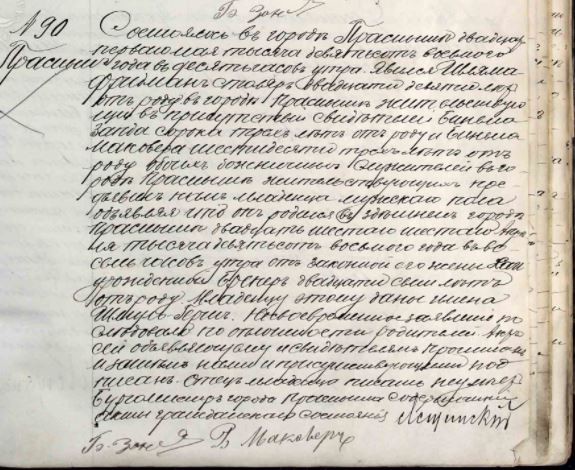 Б. Зонд
№ 90
Прасныш
Состоялось въ городѣ Праснышѣ двадцать
перваго мая тысяча девятьсотъ восьмого
года въ десять часовъ утра. Явился Шляма
Фридманъ столяръ двадцати девяти лѣтъ
отъ роду въ городѣ Праснышѣ жительствую
щій въ присутствіи свидѣтелей
Занда сорока трехъ лѣтъ отъ роду и
Маковера шестидесяти трехъ лѣтъ отъ
роду обоихъ божничныхъ служителей въ го-
родѣ Праснышѣ жительствующихъ и пре-
дъявилъ намъ младенца мужскаго пола
объявляя что онъ родился въ здѣшнемъ городѣ
Праснышѣ двадцать шестаго
тысяча девятьсотъ восьмого года въ во-
семь часовъ утра отъ законной его жены
урожденной двадцати семи лѣтъ
отъ роду. Младенцу этому дано имя
Герш. Несвоевременное заявленіе по
слѣдовало по оплошности родителей. Актъ
сей объявляющему и свидѣтелямъ прочитанъ
нами и присутствующими под
писанъ. Отецъ младенца писать не умѣетъ
Бургомистръ города Прасныша Содержащій
акты гражданскаго состоянія
Б. Зонд В Маковеръ